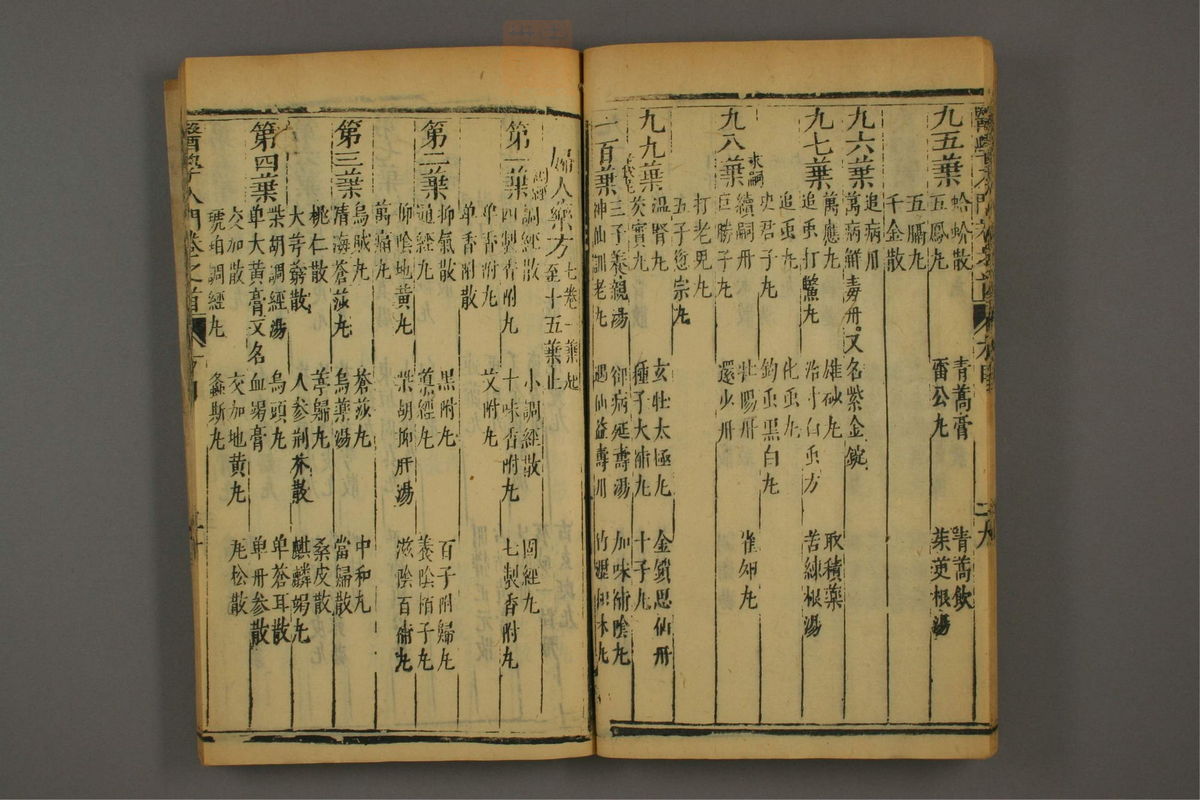 九五葉
蛤蚧散 青蒿膏 青蒿飲
五鳳丸 雷公丸 茱萸根湯
五膈丸
千金散
九六葉
追病丹
萬病解毒丹又名紫金錠
萬應丸 雄砂丸 取積藥
九七葉
追虫打鱉丸 治寸白虫方 苦練根湯
追虫丸 化虫丸
史君子丸 鈎虫黑白丸
九八葉
求嗣
續嗣丹 壯陽丹 雀卵丸
巨勝子丸 還少丹
打老兒丸
五子衍宗丸
九九葉
溫腎丸 玄牡太極丸 金鎖思仙丹
芡實丸 種子大補丸 十子丸
一百葉
三子養親湯 卻病延壽湯 加味補陰丸
神仙訓老丸 遇仙益壽丹
婦人藥方 七卷一葉起 至十五葉止
第一葉
調經
調經散 小調經散 固經丸
四製香附丸 十味香附丸 七製香附丸
單香附丸 艾附丸
單香附散
第二葉
抑氣散 黑附丸 百子附歸丸
通經丸 萬經丸 養陰栢子丸
抑陰地黃丸 柴胡抑肝湯 滋陰百補丸
萬痛丸
第三葉
烏賊丸 蒼莎丸 中和丸
清海蒼莎丸 烏藥湯 當歸散
桃仁散 芎歸丸 桑皮散
大芎藭散 人參荊芥散 麒麟竭丸
第四葉
柴胡調經湯 烏頭丸 單蒼耳散
單大黃膏又名血竭膏 單丹參散
交加散 交加地黃丸 龙松散
琥珀調經丸 螽斯丸
醫學入門卷之首